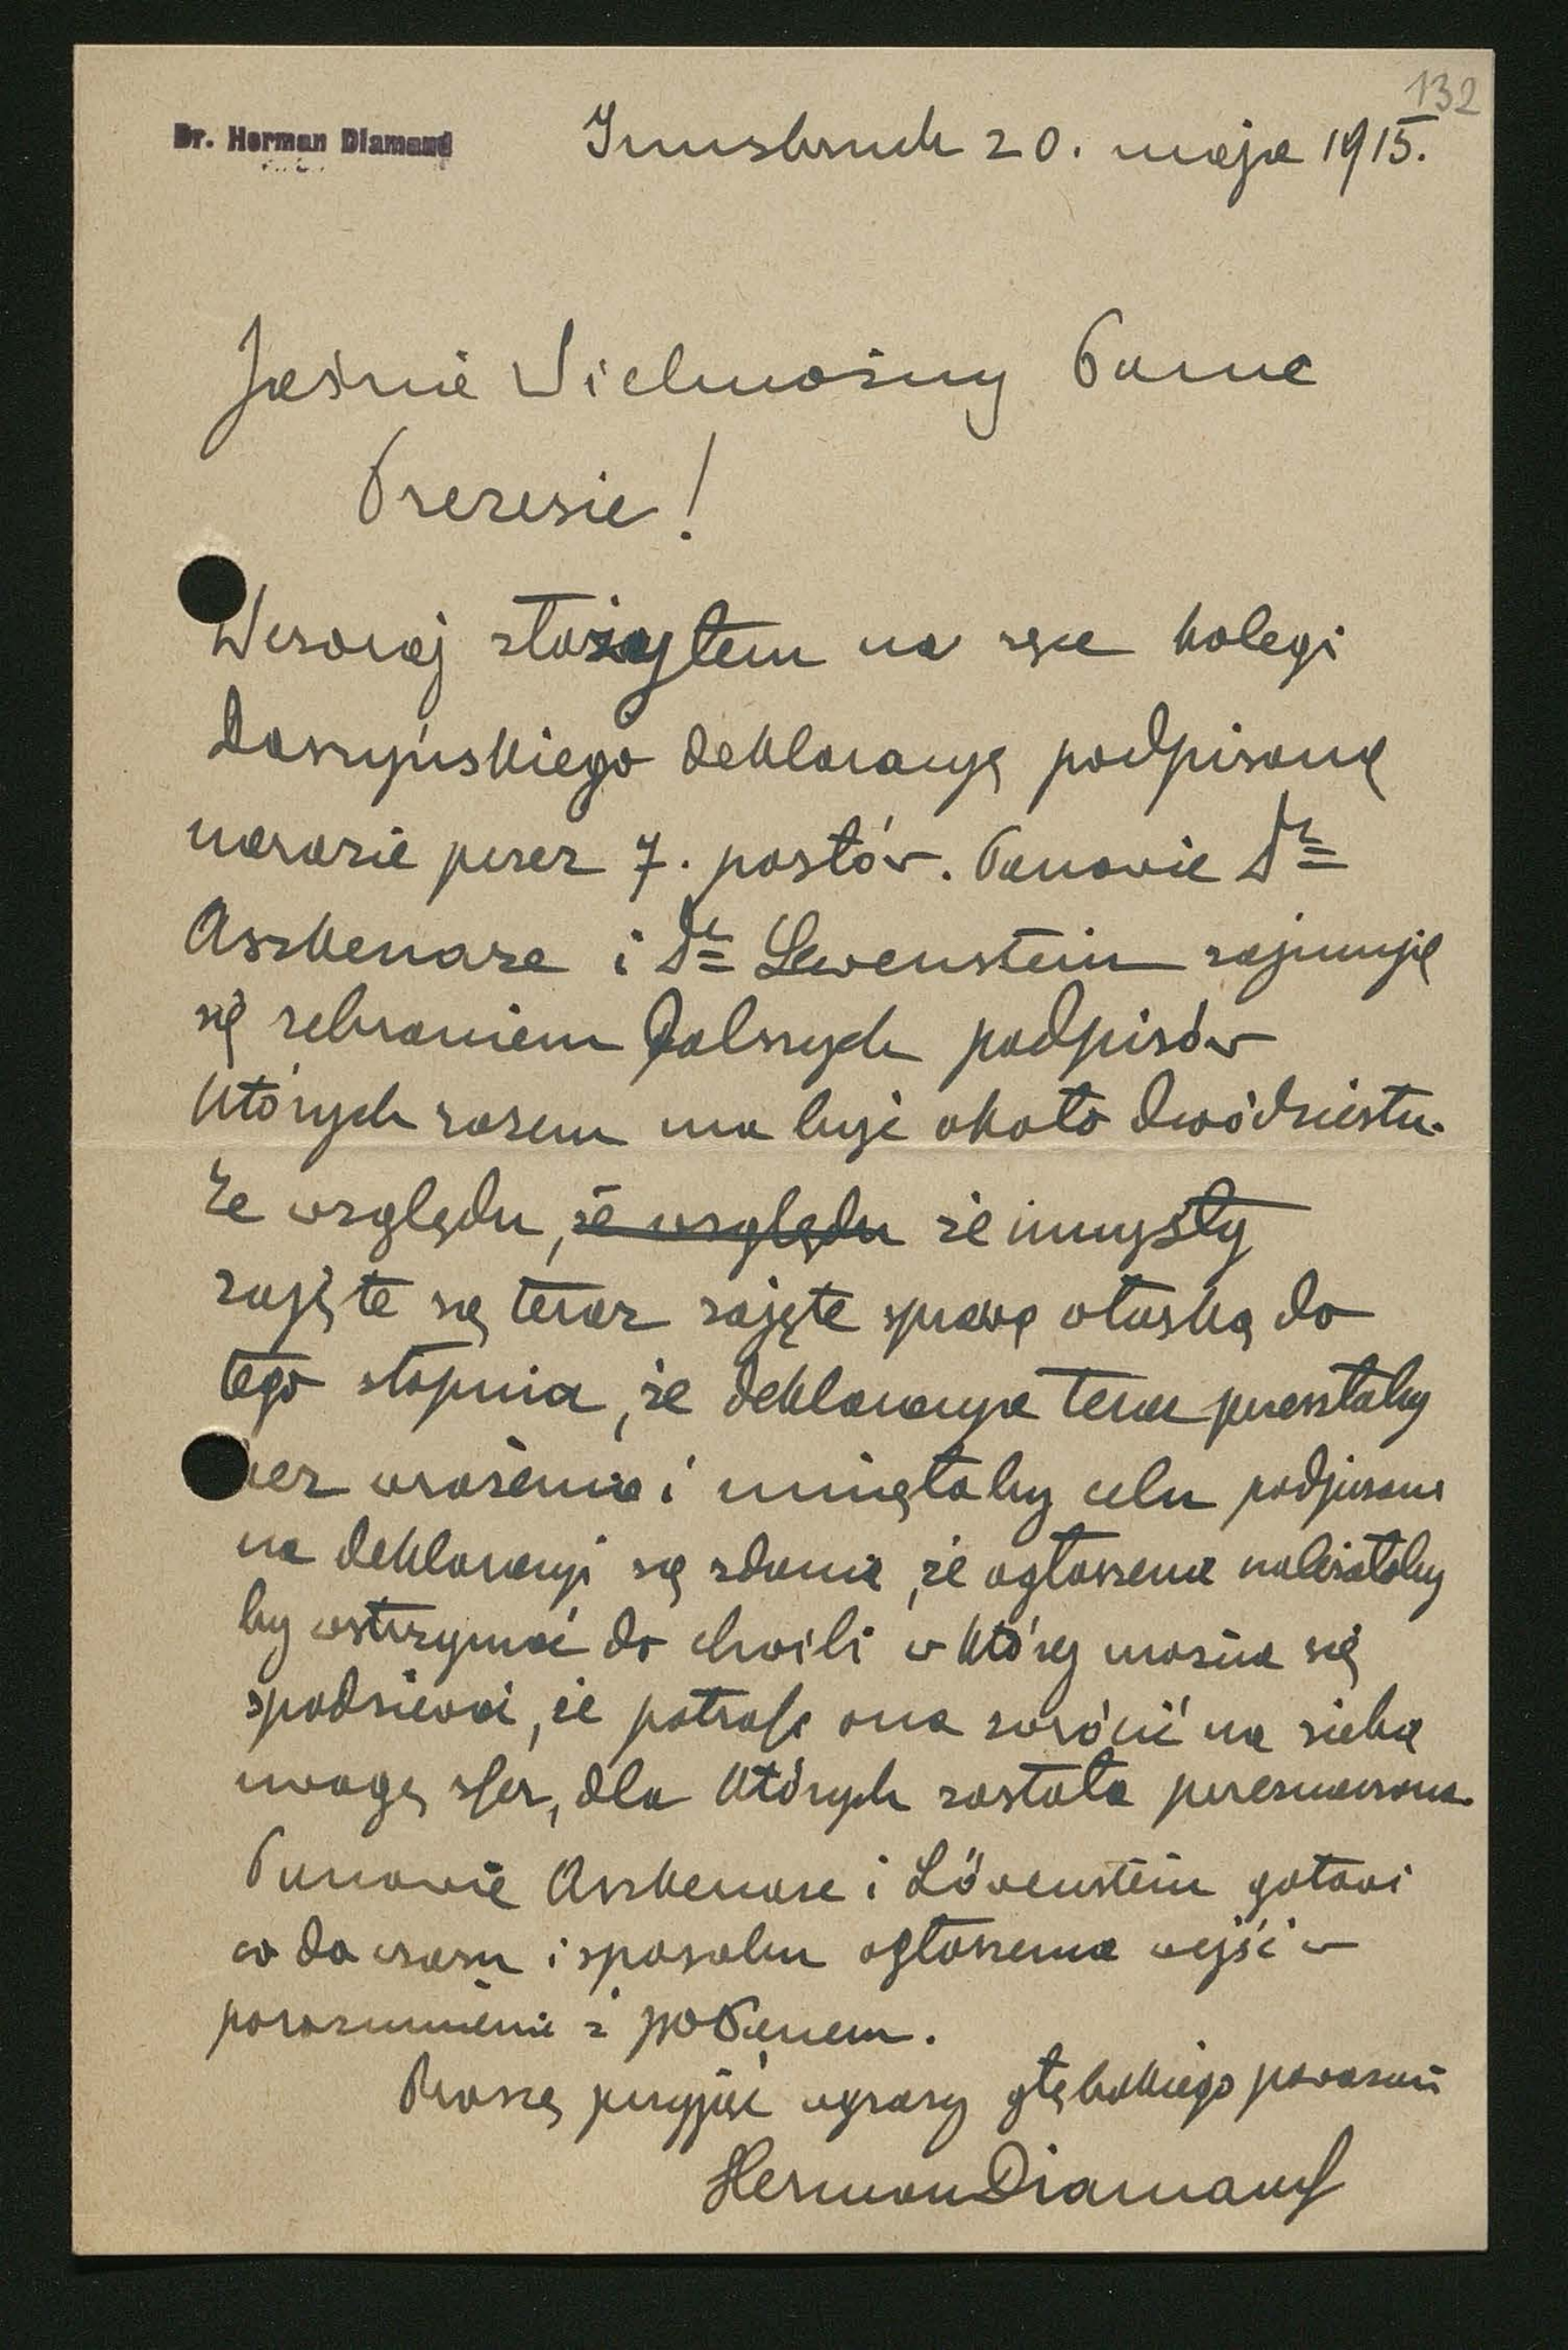 132
Dr. Herman Diamand
Innsbruck 20. maja 1915.
Jaśnie Wielmożny Panie
Prezesie!
Wczoraj złożyłem na ręce kolegi
Daszyńskiego deklaracyę podpisaną
narazie przez 7. posłów. Panowie Dr
Aszkenaze i Dr Lewenstein zajmuję
się zebraniem dalszych podpisów
których razem ma być około dwódziestu.
Ze względu, że względu że umysły
zajęte są teraz zajęte sprawą włoską do
tego stopnia, że deklaracya teraz przeszłaby
bez wrażenia i minęłaby celu podpisani
na deklaracyi są zdania, że ogłoszenie należałoby
by wstrzymać do chwili w której można się
spodziewać, że potrafi ona zwrócić na siebie
uwagę sfer, dla których została przeznaczona.
Panowie Aszkenaze i Löwenstein gotowi
co do czasu i sposobu ogłoszenia wejść w
porozumienie z Panem.
Proszę przyjąć wyrazy głębokiego poważania
Herman Diamand